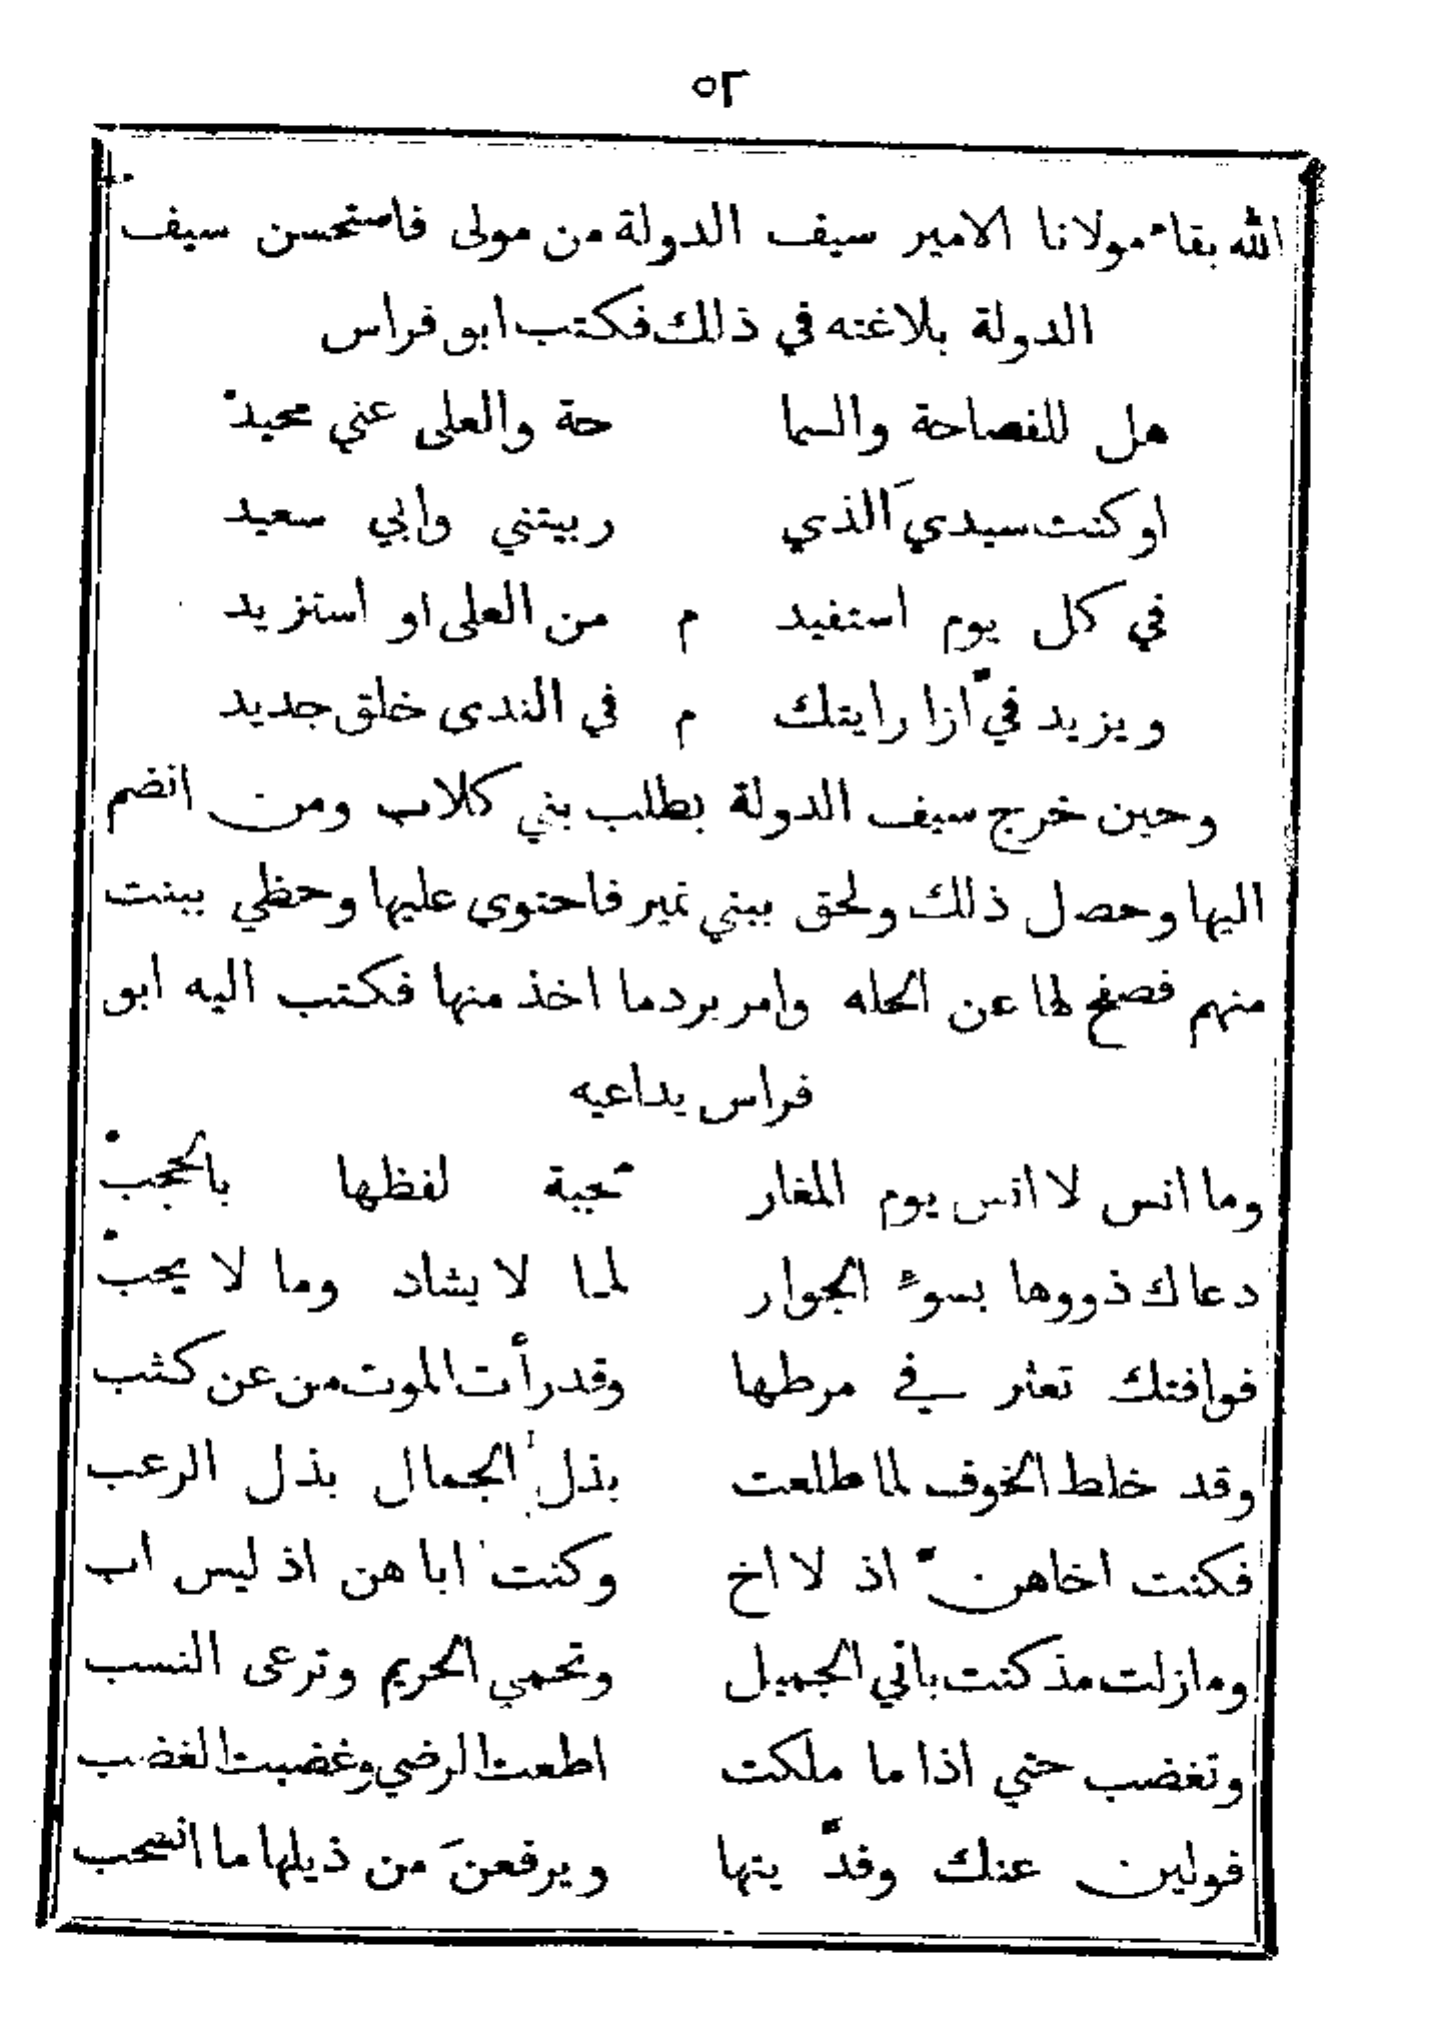 ٥٢
الله بقاء مولانا الامير سيف الدولة من مولى فاستحسن سيف
الدولة بلاغته في ذلك فكتب ابو فراس
هل للفصاحة والسما حة والعلى عني محيد
او كنت سيدي الذي ربيتني وابي سعيد
في كل يوم استفيد م من العلى او استزيد
ويزيد فيّ اذا رايتك م في الندى خلق جديد
وحين خرج سيف الدولة بطلب بني كلاب ومن انضم
اليها وحصل ذلك ولحق ببني نمير فاحتوى عليها وحظي ببنت
منهم فصفح لها عن الحله وامر برد ما اخذ منها فكتب اليه ابو
فراس يداعبه
وما انس لا انس يوم المغار محجبة لفظها بالحجب
دعاك ذووها بسوء الجوار لما لا يشاد وما لا يحب
فوافتك تعثر في مرطها وقد رأت الموت من عن كثب
وقد خلط الخوف لما طلعت بذل الجمال بذل الرعب
فكنت اخاهنّ اذ لا اخ وكنت اباهن اذ ليس اب
وما زلت مذ كنت باني الجميل وتحمي الحريم وترعى النسب
وتغضب حتي اذا ما ملكت اطعت الرضي وغضبت الغضب
فولين عنك وفدّ ينها ويرفعنَ من ذيلها ما انسحب